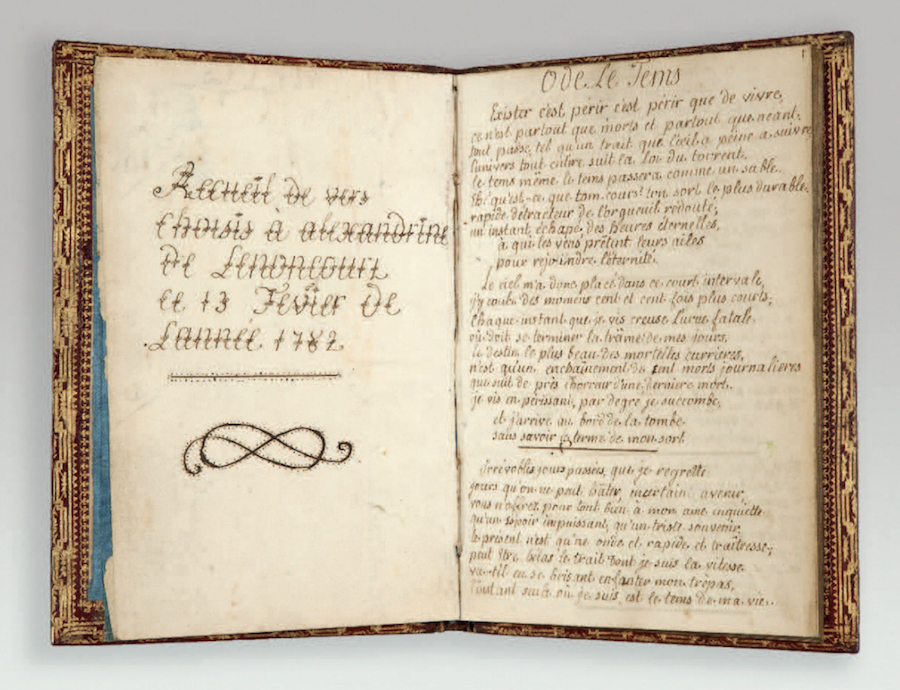 Recueil de vers
choisis à alexandrine
de Lenoncourt
ce 13 Fevier de
Lannee 1782
1
Ode Le Tems
Exister c'est perir c'est perir que de vivre,
ce n'est partout que morts et partout que neant.
tout passe, tel qu'un trait que l'oeil a peine a suivre
l'univers tout entire suit la Loi du torrent.
le tems même le tems passera comme un sable.
qu'est-ce que ton cours! ton sort le plus durable.
rapide détracteur de l'orgueuil redouté;
un instant échapé des heures éternelles,
à qui les vens prêtent leurs ailes
pour rejoindre l'éternité.
Le ciel m'a donc placé dans ce court intervale,
j'y coule des momens cent et cent fois plus courts;
Chaque instant que je vis creuse l'urne fatale
où doit se terminer la trâme de mes jours,
le destin le plus beau des mortelles carrieres,
n'est qu'un enchaînement de cent morts journalieres
que suit de près l'horreur d'une derniere mort.
je vis en perissant, par degré je succombe,
et j'arrive au bord de la tombe
sans savoir le terme de mon sort
jours passés, que je regrette
jours qu'on ne peut hâter, incertain avenir,
vous n'offrez pour tout bien à mon ame inquiette
qu'un espoir impuissant, qu'un triste souvenir,
le present n'est qu'une onde et rapide et traîtresse;
peut être hélas le trait dont je suis la vitesse
va-t'il en se brisant enfanter mon trépas,
l'instant seul où je suis, est le tems de ma vie.